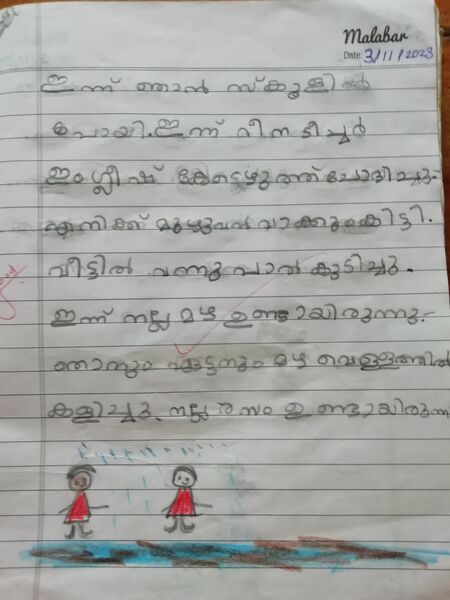 Malabar
Date: 3/11/2023
ഇന്ന് ഞാൻ സ്കൂളിൽ
പോയി. ഇന്ന് റീന ടീച്ചർ
ഇംഗ്ലീഷ് കേട്ടെഴുത്ത് ചോദിച്ചു.
എനിക്ക് മുഴുവൻ വാക്കും കിട്ടി.
വീട്ടിൽ വന്നു പാൽ കുടിച്ചു.
ഇന്ന് നല്ല മഴ ഉണ്ടായിരുന്നു.
ഞാനും ഏട്ടനും മഴ വെള്ളത്തിൽ
കളിച്ചു. നല്ല രസം ഉണ്ടായിരുന്ന